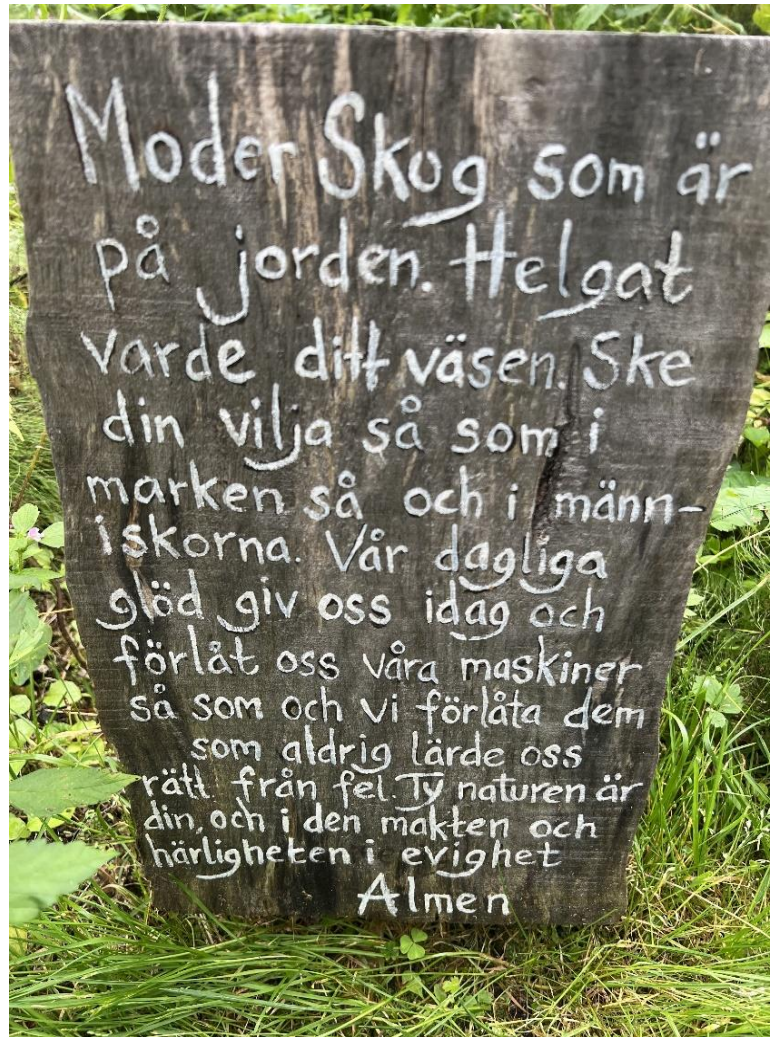 Moder Skog som är
på jorden. Helgat
varde ditt väsen. Ske
din vilja så som i
marken så och i männ-
iskorna. Vår dagliga
glöd giv oss idag och
förlåt oss våra maskiner
så som och vi förlåta dem
som aldrig lärde oss
rätt från fel. Ty naturen är
din, och i den makten och
härligheten i evighet
Almen